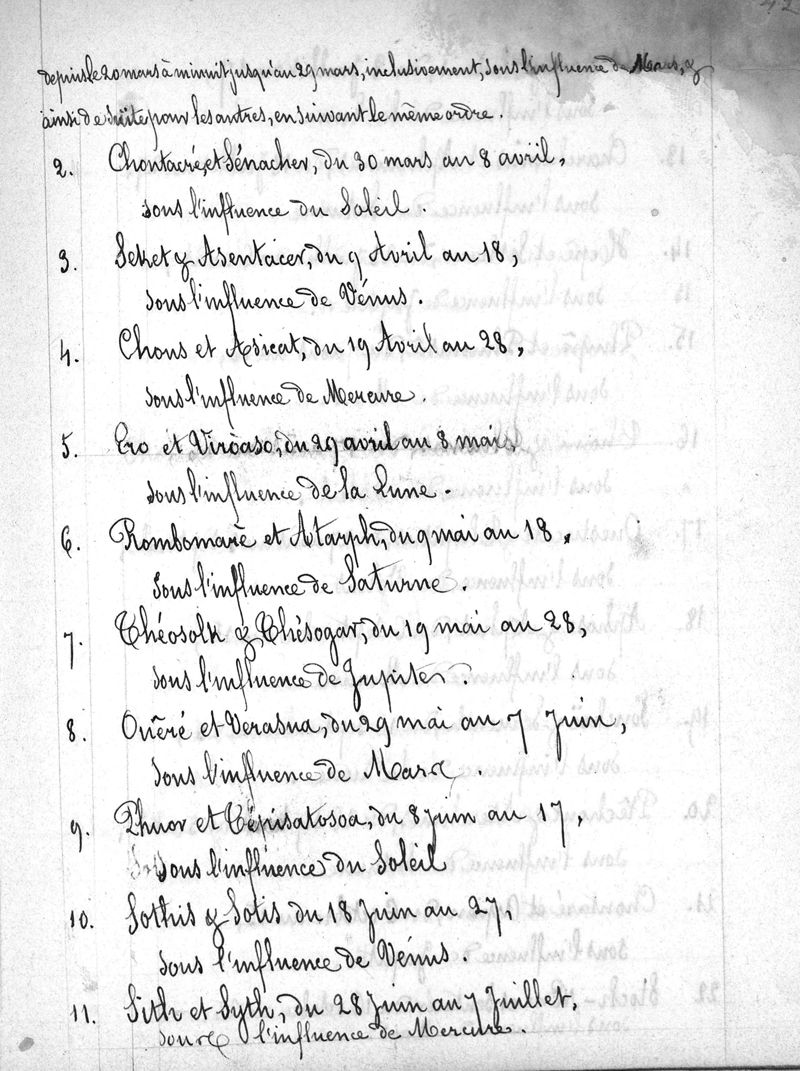 depuis le 20 mars à minuit jusqu'au 29 mars, inclusivement, sous l'influence de Mars, &
ainsi de suite pour les autres, en suivant le même ordre.
2. Chontacré, et Sénacher, du 30 mars au 8 avril,
sous l'influence du Soleil.
3. Seket & Asentacer, du 9 Avril au 18,
sous l'influence de Vénus.
4. Chous et Asicat, du 19 Avril au 28,
sous l'influence de Mercure.
5. Ero et Viroaso, du 29 avril au 8 mai,
sous l'influence de la Lune.
6. Rombomare et Atarph, du 9 mai au 18,
sous l'influence de Saturne.
7. Théosolk & Thésogar, du 19 mai au 28,
sous l'influence de Jupiter.
8. Ouéré et Verasua, du 29 mai au 7 Juin,
sous l'influence de Mars.
9. Phuor et Tépisatosoa, du 8 Juin au 17,
sous l'influence du Soleil
10. Sothis & Sotis du 18 Juin au 27,
sous l'influence de Vénus.
11. Sith et Syth, du 28 Juin au 7 Juillet,
sous l'influence de Mercure.